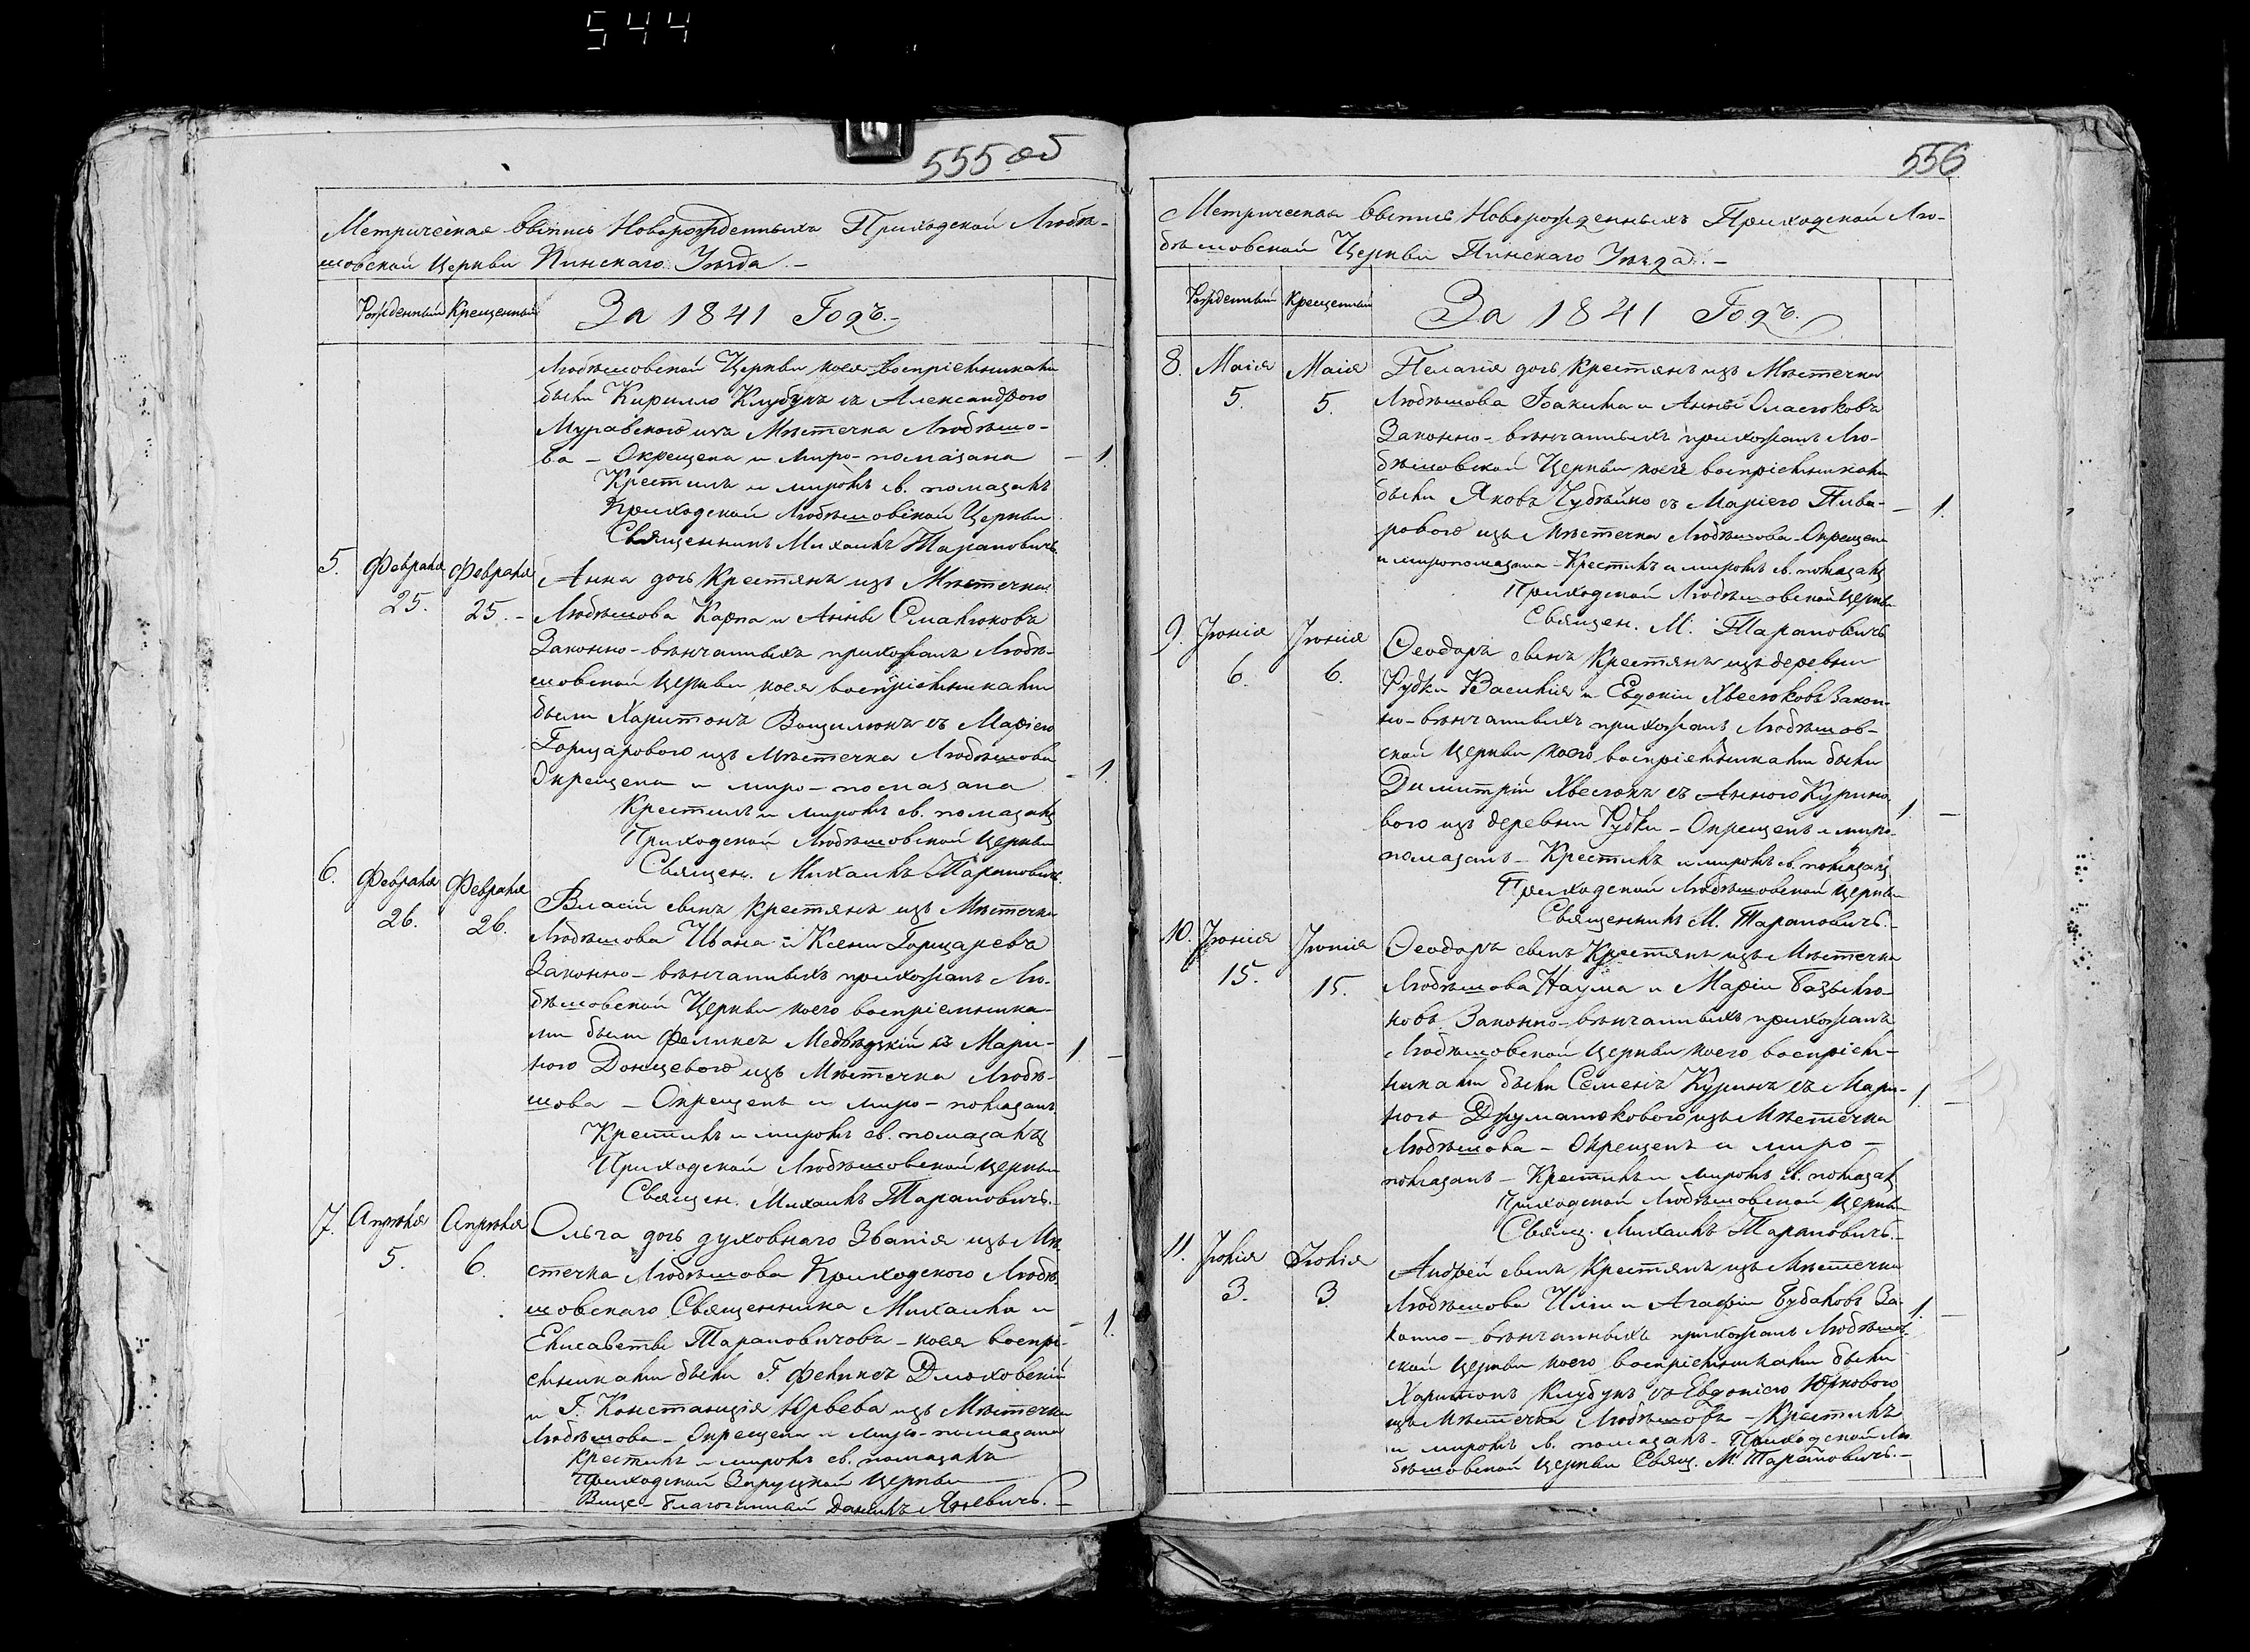 544
555 об
Метрическая выпись Новорожденныхъ Приходской Любѣ-
шовской Церкви Пинскаго Уѣзда. –
Рожденный Крещенный За 1841 Годъ. –
Любѣшовской Церкви коея воспріемниками
были Кирилло Клубукъ съ Александрою
Муравскою изъ Мѣстечка Любѣшо-
ва – Окрещена и миро-помазана – 1.
Крестилъ и миромъ св. помазалъ
Приходской Любѣшовской Церкви
Священникъ Михаилъ Тарановичъ
5. Февраля Февраля Анна дочь Крестянъ изъ Мѣстечка
25. 25. – Любѣшова Карпа и Анны Смалюковъ
Законно-вѣнчанныхъ прихожанъ Любѣ-
шовской Церкви коея воспріемниками
были Харитонъ Ващилюкъ съ Маріею
Горщаровою изъ Мѣстечка Любѣшова
Окрещена и миро-помазана – 1.
Крестилъ и миромъ св. помазалъ
Приходской Любѣшовской Церкви
Священ. Михаилъ Тарановичъ.
6. Февраля Февраля Власій сынъ Крестянъ изъ Мѣстечка
26. 26. Любѣшова Ивана и Ксени Горщаревъ
Законно-вѣнчанныхъ прихожанъ Лю-
бѣшовской Церкви коего воспріемника-
ми были Феликсъ Медвѣдзкій съ Мари-
ною Донцевою изъ Мѣстечка Любѣ- 1. –
шова – Окрещенъ и миро-помазанъ
Крестилъ и миромъ св. помазалъ
Приходской Любѣшовской Церкви
Священ. Михаилъ Тарановичъ. –
7. Апрѣля Апрѣля Ольга дочь духовнаго Званія изъ Мѣ-
5. 6. стечка Любѣшова Приходского Любѣ-
шовскаго Священника Михаила и
Елисаветы Тарановичовъ – коея воспрі- – 1.
емниками были Г. Феликсъ Длюховскій
и Г. Констанція Юрьева изъ Мѣстечка
Любѣшова – Окрещена и миро-помазана
Крестилъ и миромъ св. помазалъ
Приходской Церкви
Вице-благочинный Даниилъ Яневичъ. –
556
Метрическая выпись Новорожденныхъ Приходской Лю-
бѣшовской Церкви Пинскаго Уѣзда. –
Рожденный Крещенный За 1841 Годъ.
8. Маія Маія Пелагія дочь Крестянъ изъ Мѣстечка
5. 5. Любѣшова Іоакима и Анны Оласюковъ
Законно-вѣнчанныхъ прихожанъ Лю-
бѣшовской Церкви коея воспріемниками
были Яковъ Чубѣйко съ Маріею Пива-
ровою изъ Мѣстечка Любѣшова – Окрещена – 1.
и миропомазана – Крестилъ и миромъ св. помазалъ
Приходской Любѣшовской Церкви
Священ. М. Тарановичъ
9. Іюнія Іюнія Ѳеодоръ сынъ Крестянъ изъ деревни
6. 6. Рудки Василія и Евдокіи Хвесюковъ Закон-
но-вѣнчанныхъ прихожанъ Любѣшов-
ской Церкви коего воспріемниками были
Димитрій Хвесюкъ съ Анною Курино-
вою изъ деревни Рудки – Окрещенъ и миро- 1. –
помазанъ – Крестилъ и миромъ св. помазалъ
Приходской Любѣшовской Церкви
Священникъ М. Тарановичъ. –
10. Іюнія Іюнія Ѳеодоръ сынъ Крестянъ изъ Мѣстечка
15. 15. Любѣшова Наума и Маріи Базылю-
ковъ Законно-вѣнчанныхъ прихожанъ
Любѣшовской Церкви коего воспріем-
никами были Семенъ Куринъ съ Мари-
ною Друманюковою изъ Мѣстечка 1. –
Любѣшова – Окрещенъ и миро-
помазанъ – Крестилъ и миромъ св. помазалъ
Приходской Любѣшовской Церкви
Свящ. Михаилъ Тарановичъ. –
11. Іюлія Іюлія Андрей сынъ Крестянъ изъ Мѣстечка
3. 3. Любѣшова Иліи и Агафіи Бубаковъ За- 1. –
конно-вѣнчанныхъ прихожанъ Любѣшов-
ской Церкви коего воспріемниками были
Харитонъ Клубукъ съ Евдокіею Юрковою
изъ Мѣстечка Любѣшова – Крестилъ
и миромъ св. помазалъ – Приходской Лю-
бѣшовской Церкви Свящ. М. Тарановичъ. –